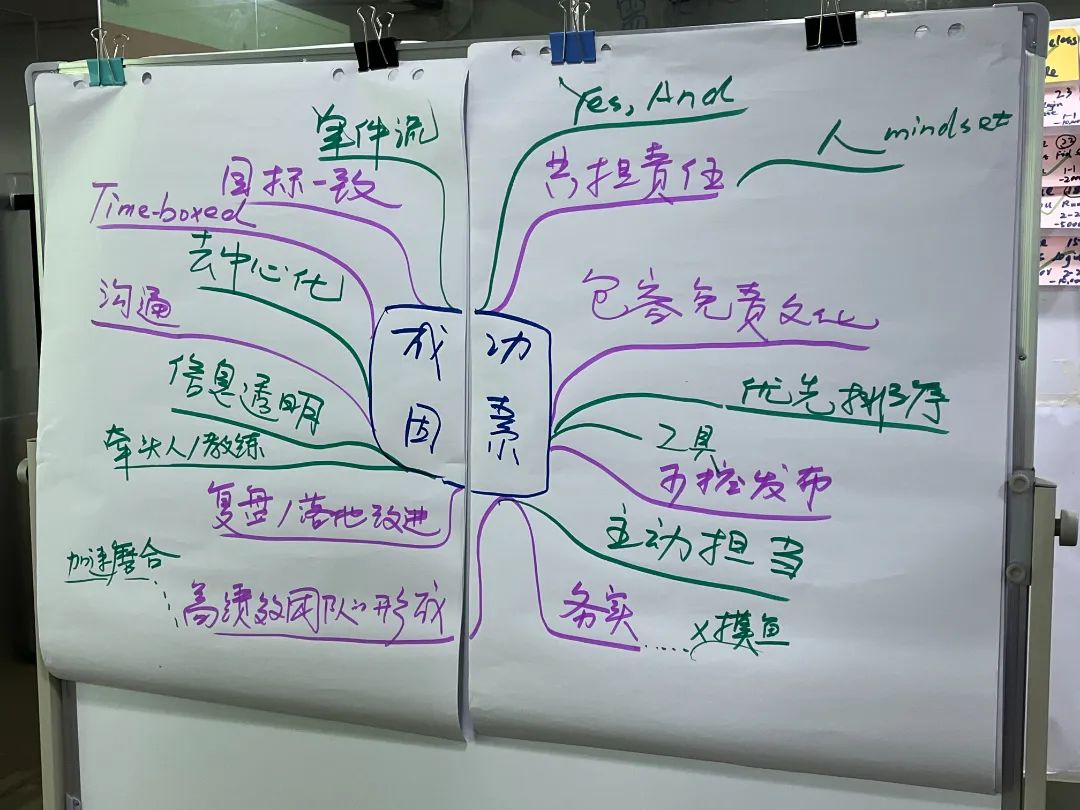 单件流
目标一致
Time-boxed
去中心化
沟通
信息透明
牵头人/教练
复盘/落地改进
加速磨合
高绩效团队的形成
成功
因素
Yes, And
共担责任
人 mindset
包容免责文化
优先排序
工具
可控发布
主动担当
务实
x摸鱼